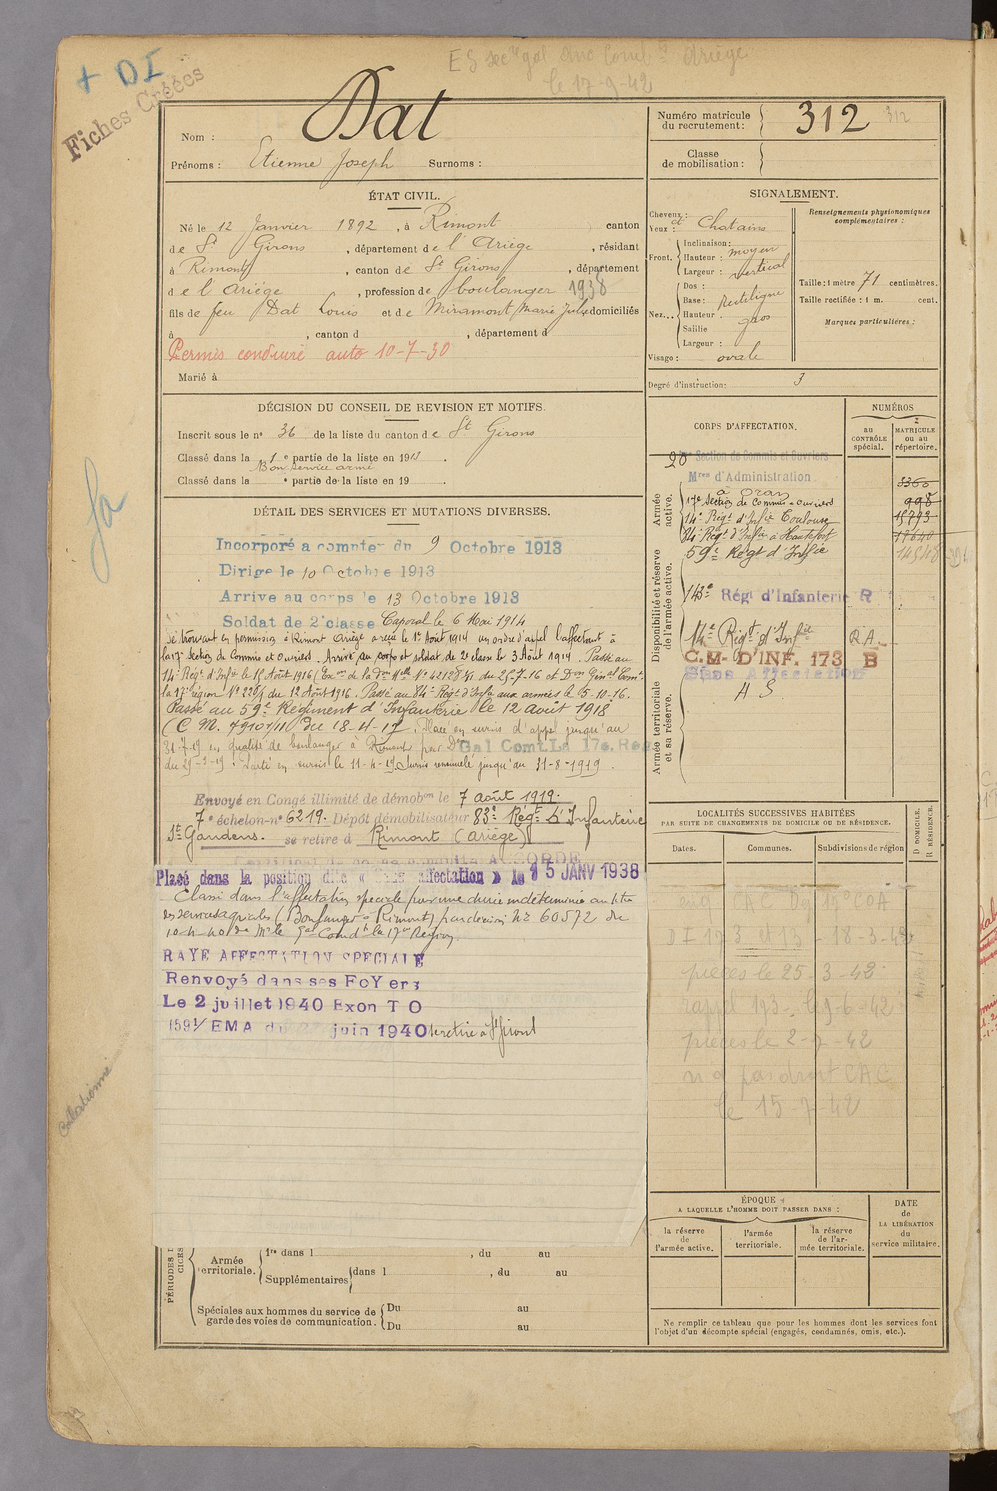 + DI
Fiches Créées
le 17-9-42
Nom : Dat
Prénoms : Etienne Joseph Surnoms :
Numéro matricule du recrutement : 312 312
Classe de mobilisation :
ÉTAT CIVIL.
Né le 12 Janvier 1892, à Rimont canton
de St Girons, département de l'Ariège, résidant
à Rimont, canton de St Girons, département
de l'Ariège, profession de boulanger 1938
fils de feu Dat Louis et de Miramont Marie Julie domiciliés
à , canton d , département d
Permis conduire auto 10-7-30
Marié à
SIGNALEMENT.
Cheveux : et Yeux : Chatains
Front. Inclinaison :
Hauteur : moyen
Largeur : vertical
Nez... Dos :
Base : Rectiligne
Hauteur :
Saillie gros
Largeur :
Visage : ovale
Renseignements physionomiques complémentaires :
Taille : 1 mètre 71 centimètres.
Taille rectifiée : 1 m. cent.
Marques particulières :
Degré d'instruction : 3
DÉCISION DU CONSEIL DE REVISION ET MOTIFS.
Inscrit sous le no 36 de la liste du canton de St Girons
Classé dans la 1e partie de la liste en 1913.
Bon service armé
Classé dans la e partie de la liste en 19 .
DÉTAIL DES SERVICES ET MUTATIONS DIVERSES.
Incorporé a compter du 9 Octobre 1913
Dirigé le 10 Octobre 1913
Arrive au corps le 13 Octobre 1913
Soldat de 2e classe Caporal le 6 Mai 1914
Se trouvant en permission à Rimont Ariège a reçu le 1er Août 1914 un ordre d'appel l'affectant à
la 17e Section de Commis et Ouvriers. Arrivé au corps et soldat de 2e classe le 3 Août 1914. Passé au
14e Régt d'Infie le 15 Août 1916
la 17e région No 228/1 du 12 Août 1916. Passé au 84e Régt d'Infie aux armées le 5-10-16.
Passé au 59e Régiment d'Infanterie le 12 août 1918
(C M. 7910/11 du 18-4-17. Placé en sursis d'appel jusqu'au
31-7-19 en qualité de boulanger à Rimont par Don Gal Comt La 17e Reg
du 29-3-19. Parti en sursis le 11-4-19 Sursis renouvelé jusqu'au 31-8-1919.
Envoyé en Congé illimité de démobon le 7 août 1919.
7e échelon no 6219. Dépôt démobilisateur 83e Régt d'Infanterie
St Gaudens. se retire à Rimont (Ariège)
Placé dans la position dite « Sans affectation » le 15 JANV 1938
Classé dans l'affectation spéciale pour une durée indéterminée au titre
des services agricoles (Boulanger à Rimont) par decision No 60572 du
10-4-40 de Mr le Gal Comdt la 17me Region.
RAYE AFFECTATION SPECIALE
Renvoyé dans ses FoYers
Le 2 juillet 1940 Exon T O
1591/EMA du juin 1940 se retire à Rimont
CORPS D'AFFECTATION.
NUMÉROS
au CONTRÔLE spécial.
MATRICULE ou au répertoire.
Armée active.
20 Section de Commis et Ouvriers
Mres d'Administration
à Oran 3360
17e Section de Commis et Ouvriers 998
14e Régt d'Infie Toulouse 15793
84e Régt d'Infie à Hautefort 17640
59e Régt d'Infie 14548
Disponibilité et réserve de l'armée active.
143e Régt d'Infanterie R
14e Régt d'Infie RA.
C.M. D'INF. 173 B
Sans Affectation
A S
Armée territoriale et sa réserve.
LOCALITÉS SUCCESSIVES HABITÉES
PAR SUITE DE CHANGEMENTS DE DOMICILE OU DE RÉSIDENCE.
Dates. Communes. Subdivisions de région
D DOMICILE. R RÉSIDENCE.
DI 193 et 13 - 18-3-42
pièces le 25-3-42
rappel 193 - le 9-6-42
pièces le 2-7-42
n'a pas droit CAC
le 15-7-42
ÉPOQUE
A LAQUELLE L'HOMME DOIT PASSER DANS :
la réserve de l'armée active.
l'armée territoriale.
la réserve de l'armée territoriale.
DATE de LA LIBÉRATION du service militaire.
Armée territoriale. 1re dans l , du au
Supplémentaires dans l , du au
Spéciales aux hommes du service de garde des voies de communication. Du au
Du au
Ne remplir ce tableau que pour les hommes dont les services font
l'objet d'un décompte spécial (engagés, condamnés, omis, etc.).